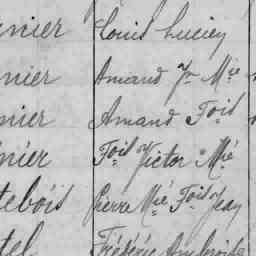 nier Louis Lucien
nier Amand Jn Mie
nier Amand Fois
nier Fois Victor Mié
tebois Pierre Mié Fois Jean
tel Frédéric Ambroise